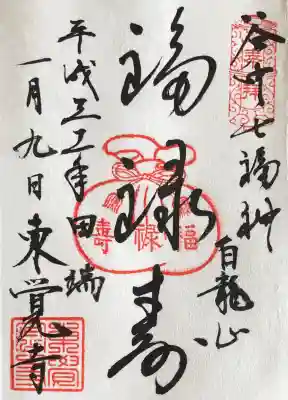 奉拝
谷中七福神
白龍山
福禄寿
福禄壽
平成三十一年
田端
一月九日
東覚寺